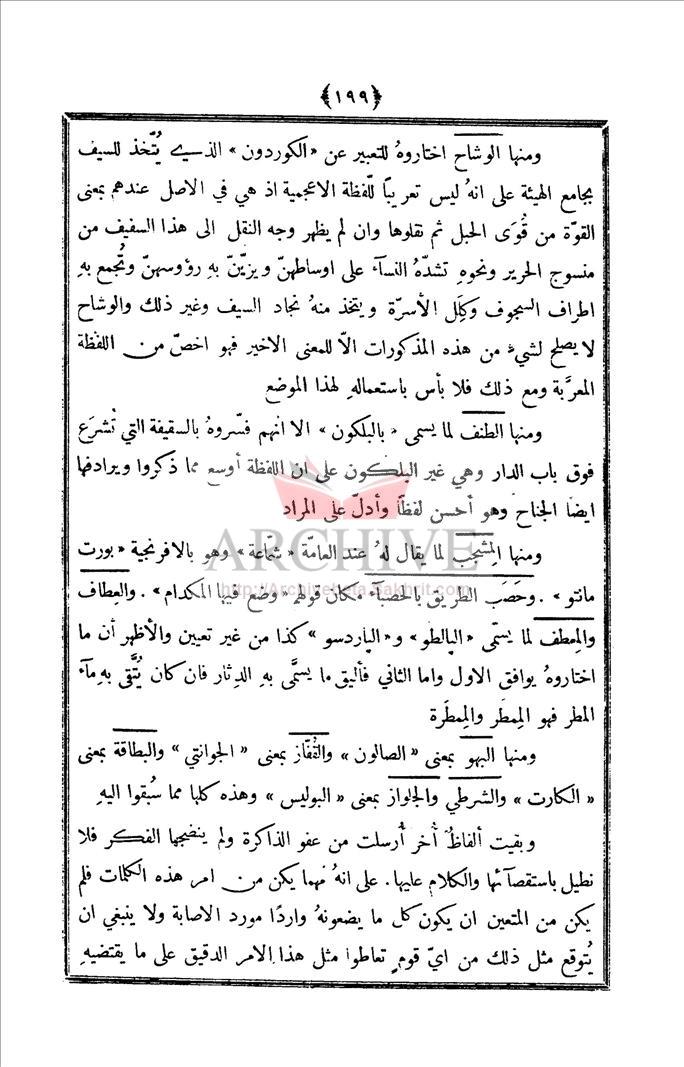 ﴿١٩٩﴾
ومنها الوشاح اختاروهُ للتعبير عن «الكوردون» الذي يُتّخذ للسيف
بجامع الهيئة على انهُ ليس تعريبًا للّفظة الاعجمية اذ هي في الاصل عندهم بمعنى
القوّة من قُوَى الحبل ثم نقلوها وان لم يظهر وجه النقل الى هذا السفيف من
منسوج الحرير ونحوهِ تشدّهُ النسآء على اوساطهنّ ويزيّنّ بهِ رؤوسهنّ وتُجمع بهِ
اطراف السجوف وكِلَل الأسرّة ويتخذ منهُ نجاد السيف وغير ذلك والوشاح
لا يصلح لشيء من هذه المذكورات الّا للمعنى الاخير فهو اخصّ من اللفظة
المعرَّبة ومع ذلك فلا بأس باستعمالهِ لهذا الموضع
ومنها الطنف لما يسمى «بالبلكون» الا انهم فسّروهُ بالسقيفة التي تُشرَع
فوق باب الدار وهي غير البلكون على ان اللفظة أوسع مما ذكروا ويرادفها
ايضًا الجناح وهو أحسن لفظًا وأدلّ على المراد
ومنها المِشجَب لما يقال لهُ عند العامّة «شمّاعة» وهو بالافرنجية «بورت
مانتو». وحَصَب الطريق بالحصبآء مكان قولهم «وضع فيها المكدام». والعِطاف
والمِعطف لما يسمّى «البالطو» و«الباردسو» كذا من غير تعيين والأظهر أن ما
اختاروهُ يوافق الاول واما الثاني فأليق ما يسمَّى بهِ الدِثار فان كان يُتَّقى بهِ مآء
المطر فهو المِمطَر والمِمطَرة
ومنها البهو بمعنى «الصالون» والقُفّاز بمعنى «الجوانتي» والبطاقة بمعنى
«الكارت» والشرطي والجلواز بمعنى «البوليس» وهذه كلها مما سُبقوا اليهِ
وبقيت ألفاظٌ أُخر أُرسلت من عفو الذاكرة ولم ينضجها الفكر فلا
نطيل باستقصآئها والكلام عليها. على انهُ مهما يكن من امر هذه الكلمات فلم
يكن من المتعين ان يكون كل ما يضعونهُ واردًا مورد الاصابة ولا ينبغي ان
يُتوقع مثل ذلك من ايّ قومٍ تعاطوا مثل هذا الامر الدقيق على ما يقتضيهِ
ARCHIVE
http://Archivebeta.Sakhrit.com